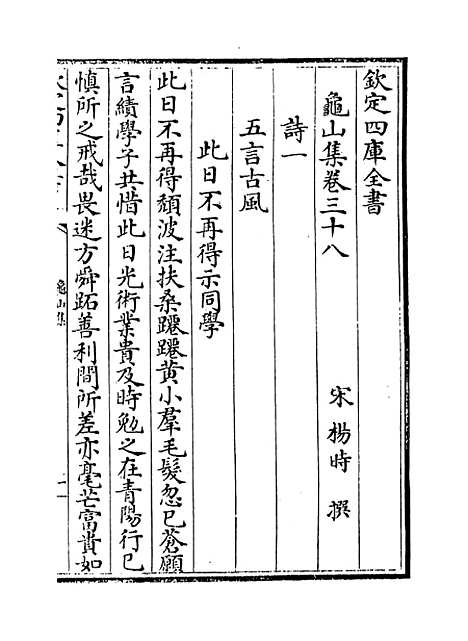 欽定四庫全書
龜山集卷三十八
宋 楊時 撰
詩一
五言古風
此日不再得示同學
此日不再得頹波注扶桑躚躚黃小羣毛髮忽已蒼願
言績學子共惜此日光術業貴及時勉之在青陽行已
慎所之戒哉畏迷方舜跖善利間所差亦毫芒富貴如
龜山集